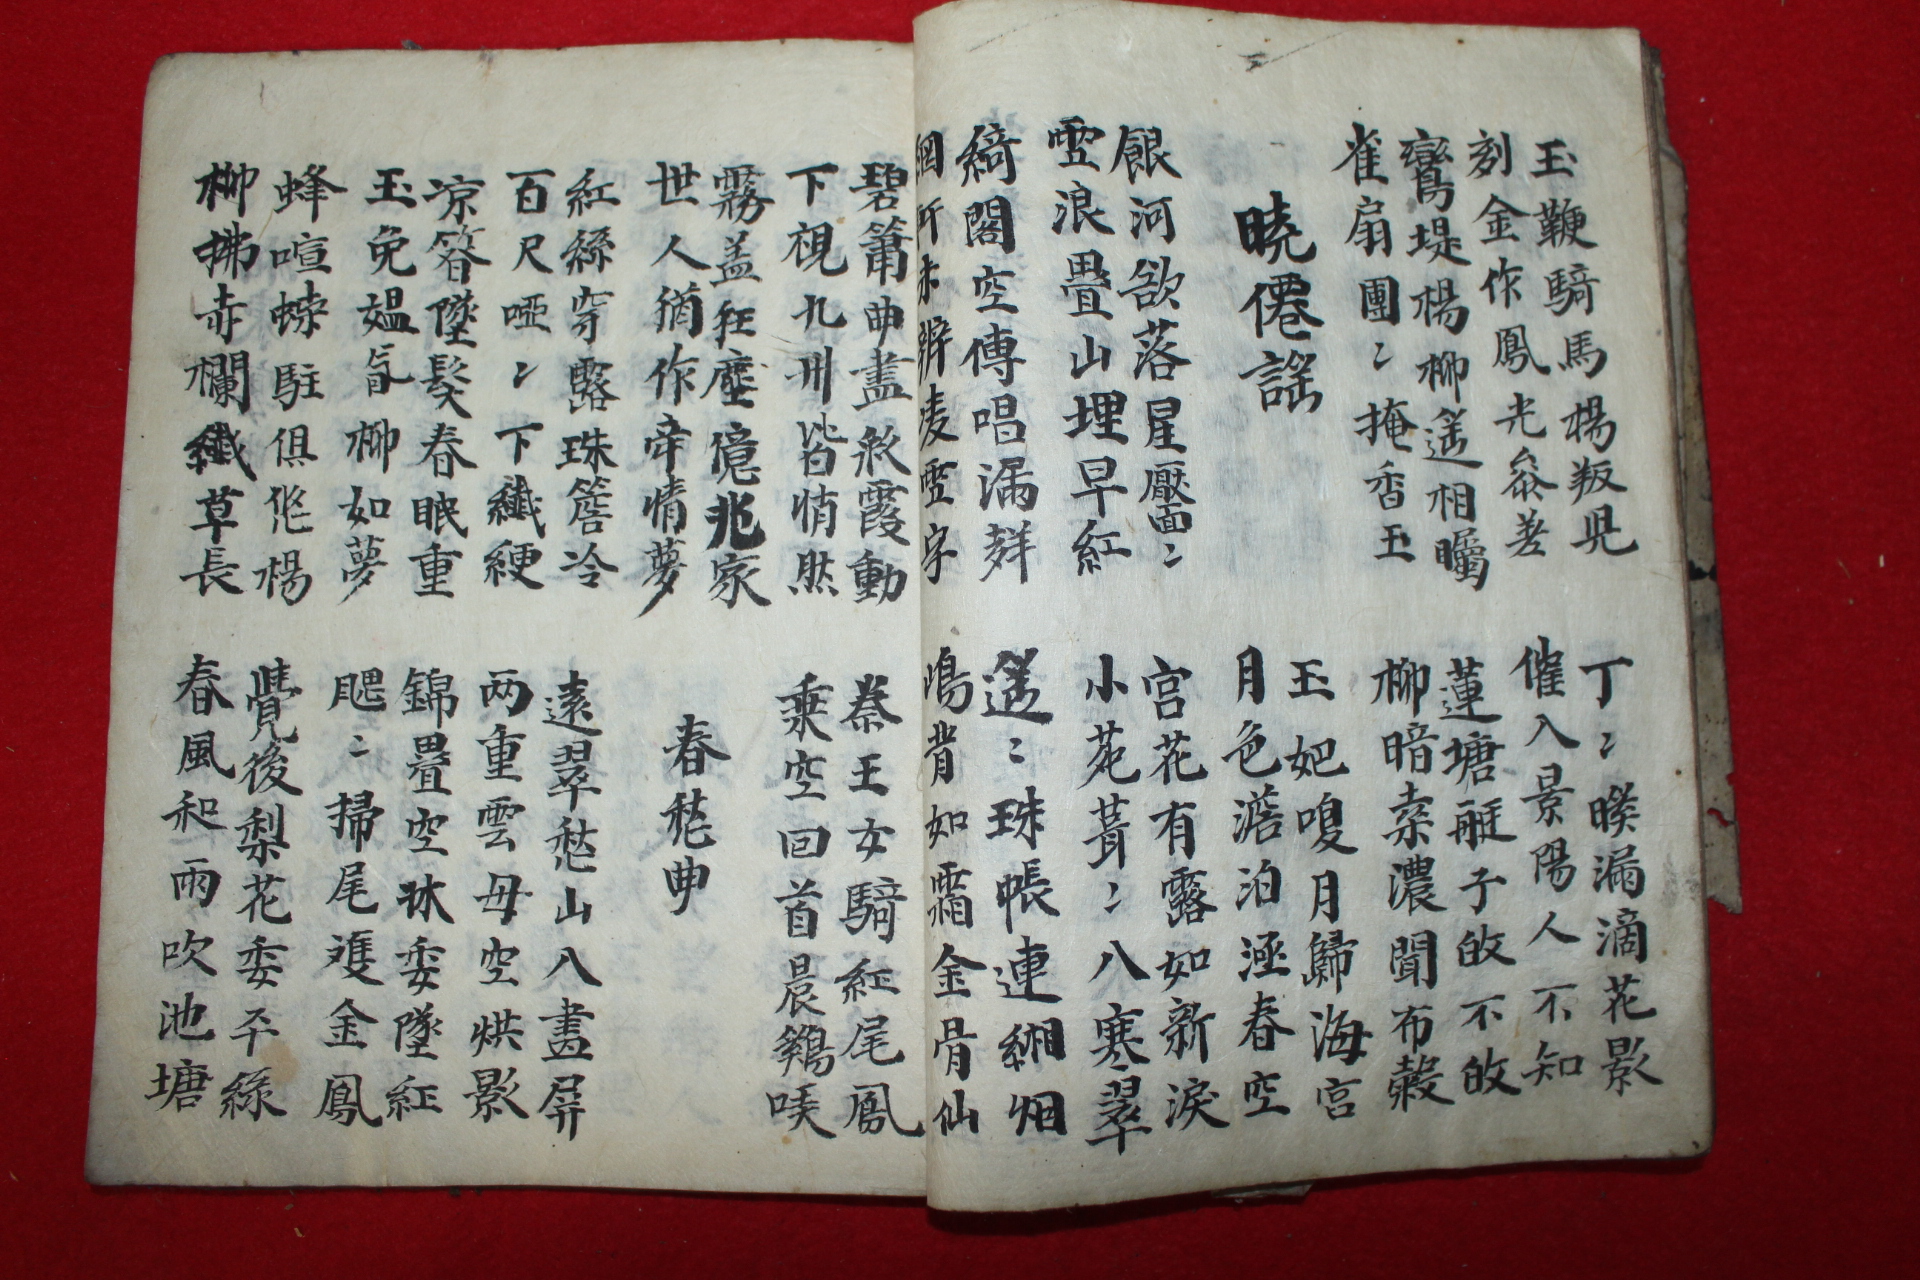 玉鞭騎馬楊叛児
刻金作鳳光叅差
丁〻暖漏滴花影
催入景陽人不知
鸞堤楊柳遥相矚
雀扇團〻掩香玉
蓮塘艇子䢖不䢖
柳暗索濃聞布榖
曉僊謠
玉妃嗅月歸海宮
月色澹泊涵春空
銀河欲落星壓面〻
雪浪疊山埋早紅
宮花有露如新淚
小苑茸〻入寒翠
綺閣空傳唱漏声
網軒未辨凌雲字
遥〻珠帳連緗烟
鴻背如霜金骨仙
碧簫曲盡彩霞動
下視九州皆悄然
秦王女騎紅尾鳳
乘空回首晨鷄唛
霧盖狂塵億兆家
世人猶作牽情夢
春愁曲
紅絲穿露珠簾冷
百尺啞〻下纖綆
遠翠愁山入畵屏
两重雲母空烘影
凉簪墜髮春眠重
玉兔煴香柳如夢
錦疊空牀委墜紅
颸〻掃尾雙金鳳
蜂喧蝶駐俱悠楊
柳拂赤欄纖草長
覺後梨花委平綠
春風和雨吹池塘